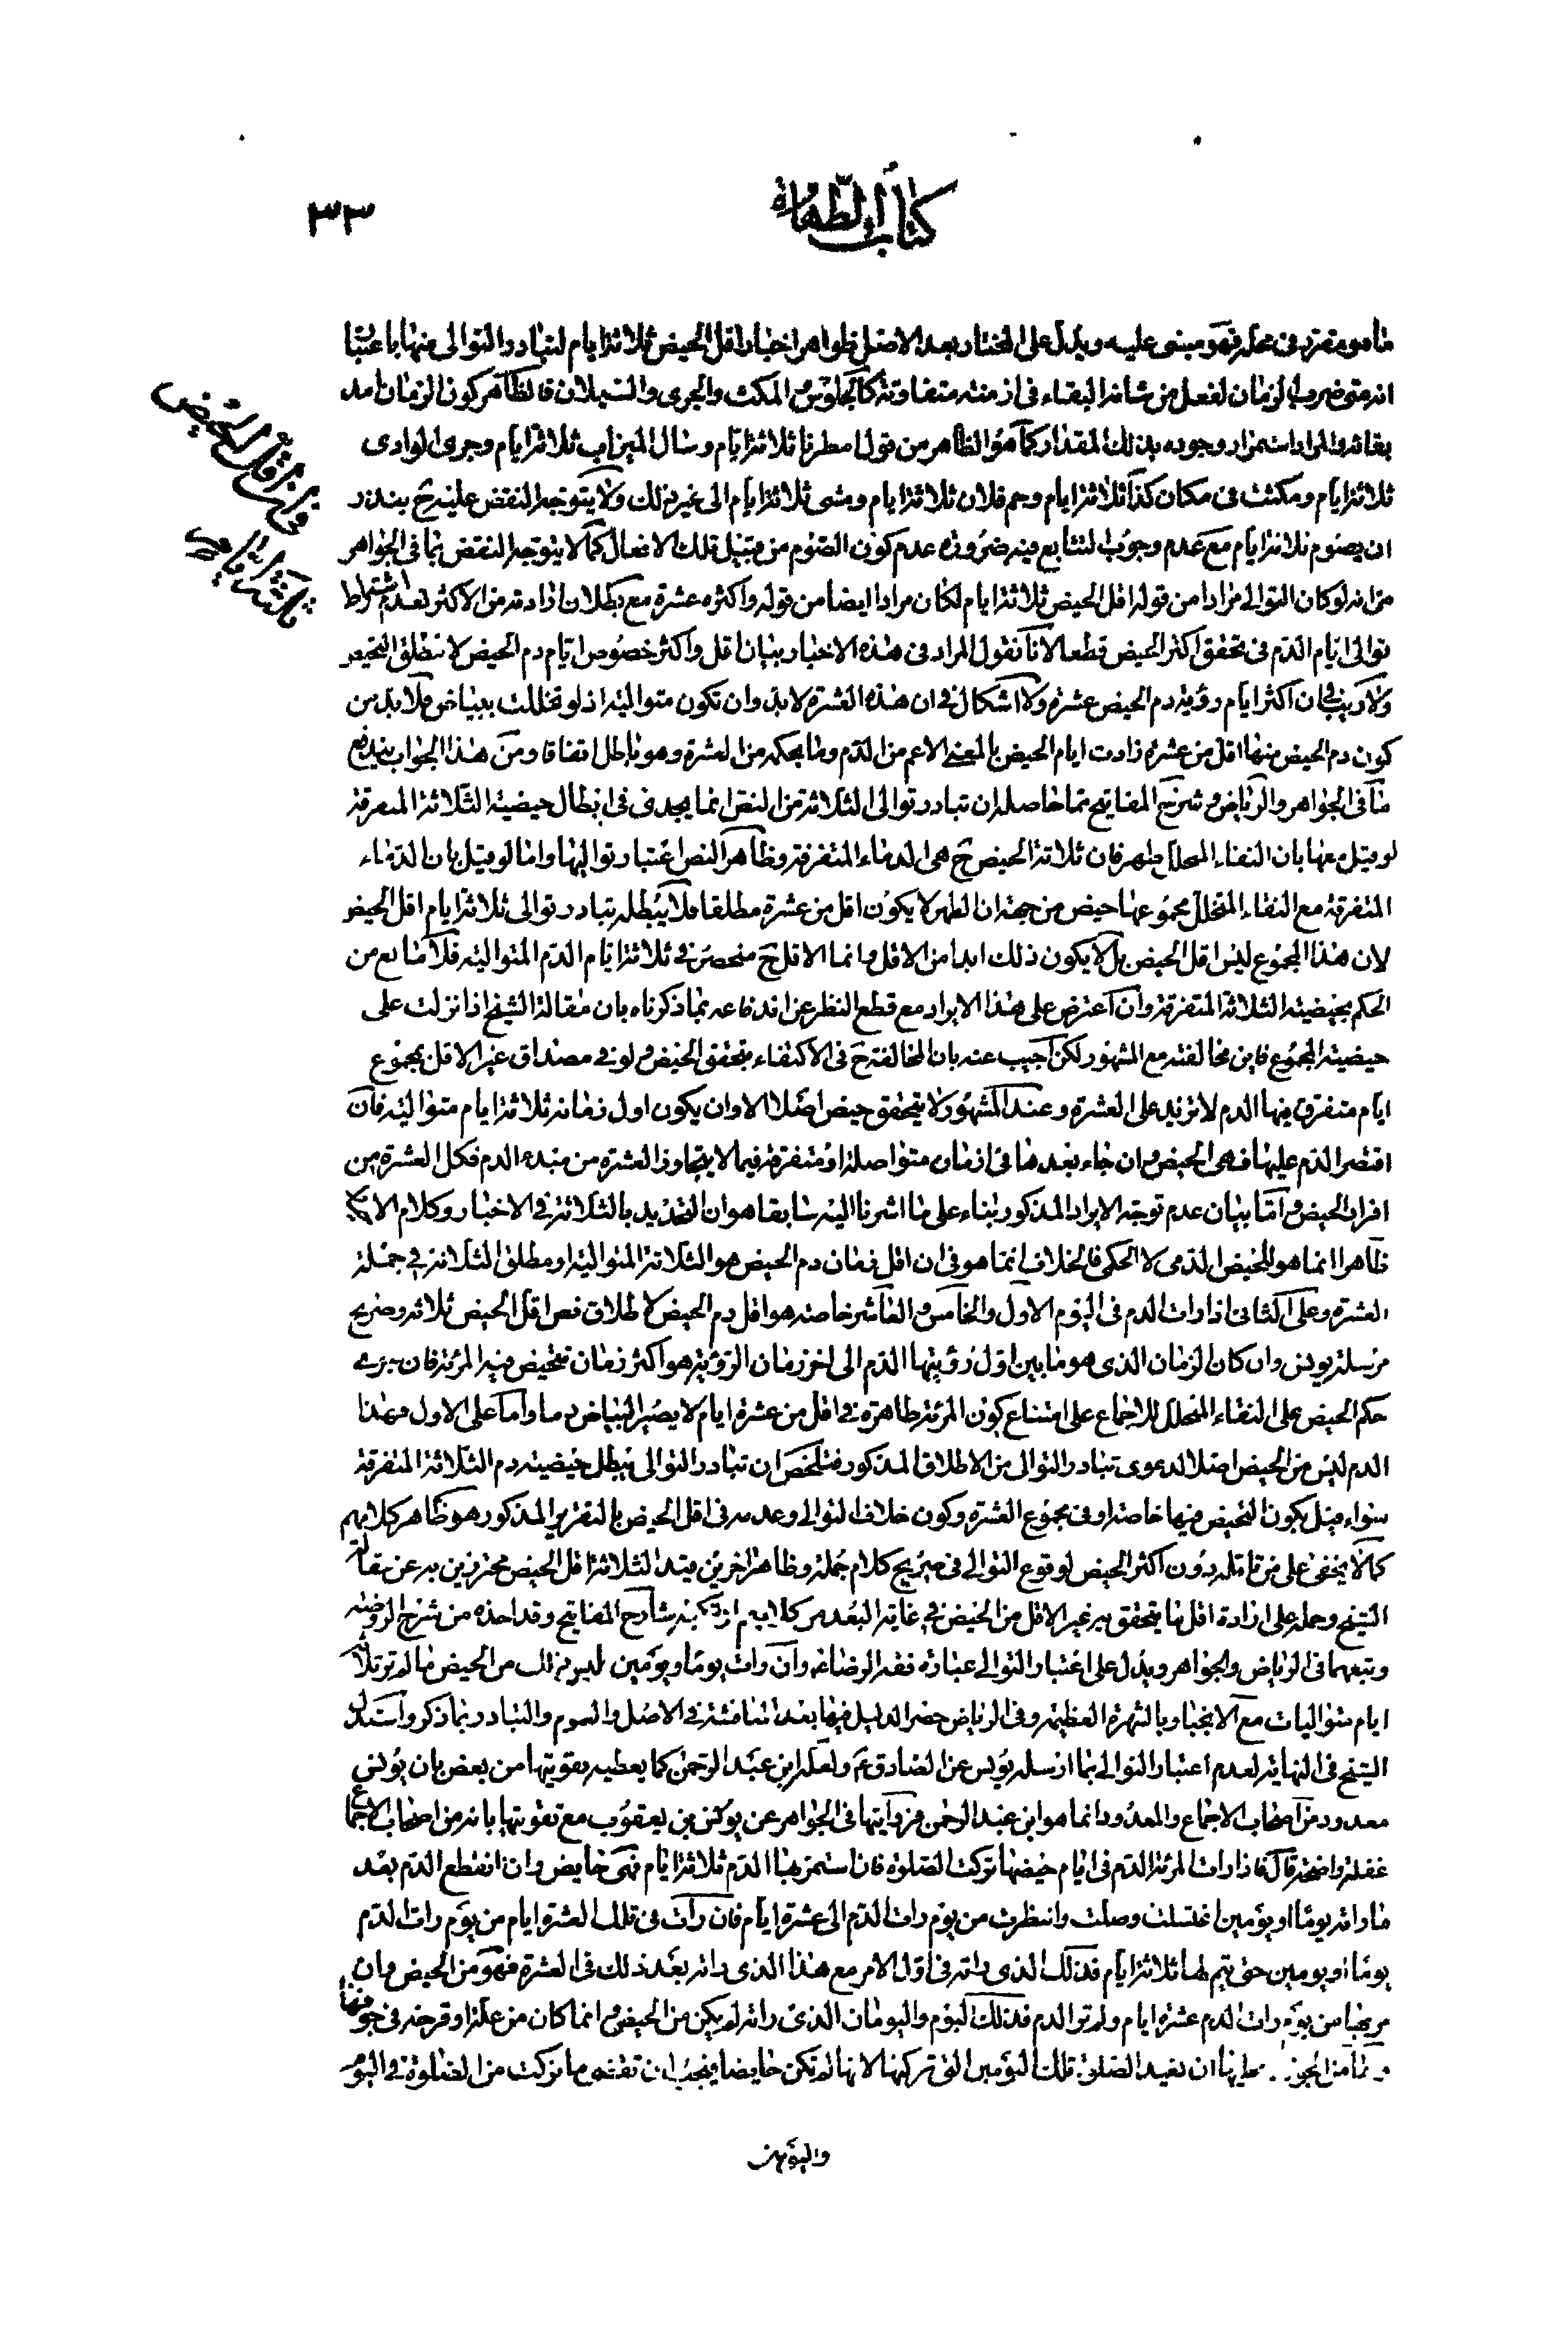 كتاب الطهارة
٣٣
ما هو مقرر فى محله فهو مبنى عليه ويدل على المختار بعد الاصل ظواهر اخبار اقل الحيض ثلاثة ايام لتبادر التوالى منها باعتبار
انه متى ضرب الزمان لفعل من شانه البقاء فى ازمنة متفاوتة كالجلوس و المكث والجرى والسيلان فالظاهر كون الزمان امد
بقائه والمراد استمرار وجوده بذلك المقدار كما هو الظاهر من قول امطرنا ثلاثة ايام وسال الميزاب ثلاثة ايام وجرى الوادى
ثلاثة ايام ومكثت فى مكان كذا ثلاثة ايام وحم فلان ثلاثة ايام ومشى ثلاثة ايام الى غير ذلك ولا يتوجه النقض عليه ح بنذر
ان يصوم ثلاثة ايام مع عدم وجوب التتابع فيه ضرورة عدم كون الصوم من قبيل تلك الافعال كما لا يتوجه النقض بما فى الجواهر
من انه لو كان التوالى مرادا من قوله اقل الحيض ثلاثة ايام لكان مرادا ايضا من قوله واكثره عشرة مع بطلان ارادته من الاكثر لعدم اشتراط
توالى ايام الدم فى تحقق اكثر الحيض قطعا لانا نقول المراد فى هذه الاخبار بيان اقل واكثر خصوص ايام دم الحيض لا مطلق التحيض
ولا ريب فى ان اكثر ايام رؤية دم الحيض عشرة ولا اشكال فى ان هذه العشرة لا بد وان تكون متوالية اذ لو تخللت ببياض فلا بد من
كون دم الحيض منها اقل من عشرة زادت ايام الحيض بالمعنى الاعم من الدم وما بحكمه من العشرة وهو باطل اتفاقا ومن هذا الجواب يندفع
ما فى الجواهر والرياض و شرح المفاتيح مما حاصله ان تبادر توالى الثلاثة من النص انما يجدى فى ابطال حيضية الثلاثة المتفرقة
لو قيل معها بان النقاء المتخلل طهر فان ثلاثة الحيض ح هى الدماء المتفرقة وظاهر النص اعتبار تواليها واما لو قيل بان الدماء
المتفرقة مع النقاء المتخلل مجموعها حيض من جهة ان الطهر لا يكون اقل من عشرة مطلقا فلا يبطله تبادر توالى ثلاثة ايام اقل الحيض
لان هذا المجموع ليس اقل الحيض بل لا يكون ذلك ابدا من الاقل وانما الاقل ح منحصر فى ثلاثة ايام الدم المتوالية فلا مانع من
الحكم بحيضية الثلاثة المتفرقة وان اعترض على هذا الايراد مع قطع النظر عن اندفاعه بما ذكرناه بان مقالة الشيخ اذا نزلت على
حيضية المجموع فاين مخالفته مع المشهور لكن اجيب عنه بان المخالفة ح فى الاكتفاء بتحقق الحيض ولو فى مصداق غير الاقل بمجموع
ايام متفرق فيها الدم لا تزيد على العشرة وعند المشهور لا يتحقق حيض اصلا الا وان يكون اول زمانه ثلاثة ايام متوالية فان
اقتصر الدم عليها فهى الحيض وان جاء بعدها فى ازمان متواصلة او متفرقة فيما لا يتجاوز العشرة من مبدء الدم فكل العشرة من
افراد الحيض و اما بيان عدم توجه الايراد المذكور بناء على ما اشرنا اليه سابقا هو ان التحديد بالثلاثة فى الاخبار وكلام
ظاهرا انما هو للحيض الدمى لا الحكمى فالخلاف انما هو فى ان اقل زمان دم الحيض هو الثلاثة المتوالية او مطلق الثلاثة فى جملة
العشرة وعلى الثانى اذا رات الدم فى اليوم الاول والخامس والعاشر خاصة هو اقل دم الحيض لاطلاق نص اقل الحيض ثلاثة وصريح
مرسلة يونس وان كان الزمان الذى هو ما بين اول رؤيتها الدم الى اخر زمان الرؤية هو اكثر زمان تتحيض فيه المرئة فان
حكم الحيض على النقاء المتخلل للاجماع على امتناع كون المرئة طاهرة فى اقل من عشرة ايام لا يصير البياض دما واما على الاول فهذا
الدم ليس من الحيض اصلا لدعوى تبادر التوالى من الاطلاق المذكور فتلخص ان تبادر التوالى يبطل حيضية دم الثلاثة المتفرقة
سواء قيل بكون التحيض فيها خاصة او فى مجموع العشرة وكون خلاف التوالى وعدمه فى اقل الحيض بالتقرير المذكور هو ظاهر كلامهم
كما لا يخفى على من تامله بدون اكثر الحيض لوقوع التوالى فى صريح كلام جملة وظاهر اخرين قيدا لثلاثة اقل الحيض محترزين به عن مقالة
الشيخ وحمله على ارادة اقل ما يتحقق به غير الاقل من الحيض فى غاية البعد من كلامهم ارتكبه شارح المفاتيح وقد اخذه من شرح الروضة
وتبعهما فى الرياض والجواهر ويدل على اعتبار التوالى عبارة فقه الرضا ع وان رات يوما او يومين فليس ذلك من الحيض ما لم تر ثلاثة
ايام متواليات مع الانجبار بالشهرة العظيمة وفى الرياض حصر الدليل فيها بعد المناقشة فى الاصل والعموم والتبادر بما ذكر واستدل
الشيخ فى النهاية لعدم اعتبار التوالى بما ارسله يونس عن الصادق ع ولعله ابن عبد الرحمن كما يعطيه تقويتها من بعض بان يونس
معدود من اصحاب الاجماع والمعدود انما هو ابن عبد الرحمن فروايتها فى الجواهر عن يونس بن يعقوب مع تقويتها بانه من اصحاب الاجماع
غفلة واضحة قال فاذا رات المرئة الدم فى ايام حيضها تركت الصلوة فان استمر بها الدم ثلاثة ايام فهى حايض وان انقطع الدم بعد
ما راته يوما او يومين اغتسلت وصلت وانتظرت من يوم رات الدم الى عشرة ايام فان رات فى تلك العشرة ايام من يوم رات الدم
يوما او يومين حتى يتم لها ثلاثة ايام فذلك الذى راته فى اول الامر مع هذا الذى راته بعد ذلك فى العشرة فهو من الحيض وان
مر بها من يوم رات الدم عشرة ايام ولم تر الدم فذلك اليوم واليومان الذى راته لم يكن من الحيض و انما كان من علة اما قرحة فى جوفها
واما من الجوف فعليها ان تعيد الصلوة تلك اليومين التى تركتها لانها لم تكن حايضا فيجب ان تقضى ما تركت من الصلوة فى اليوم
واليومين
فى ان اقل الحيض
ثلثة ايام